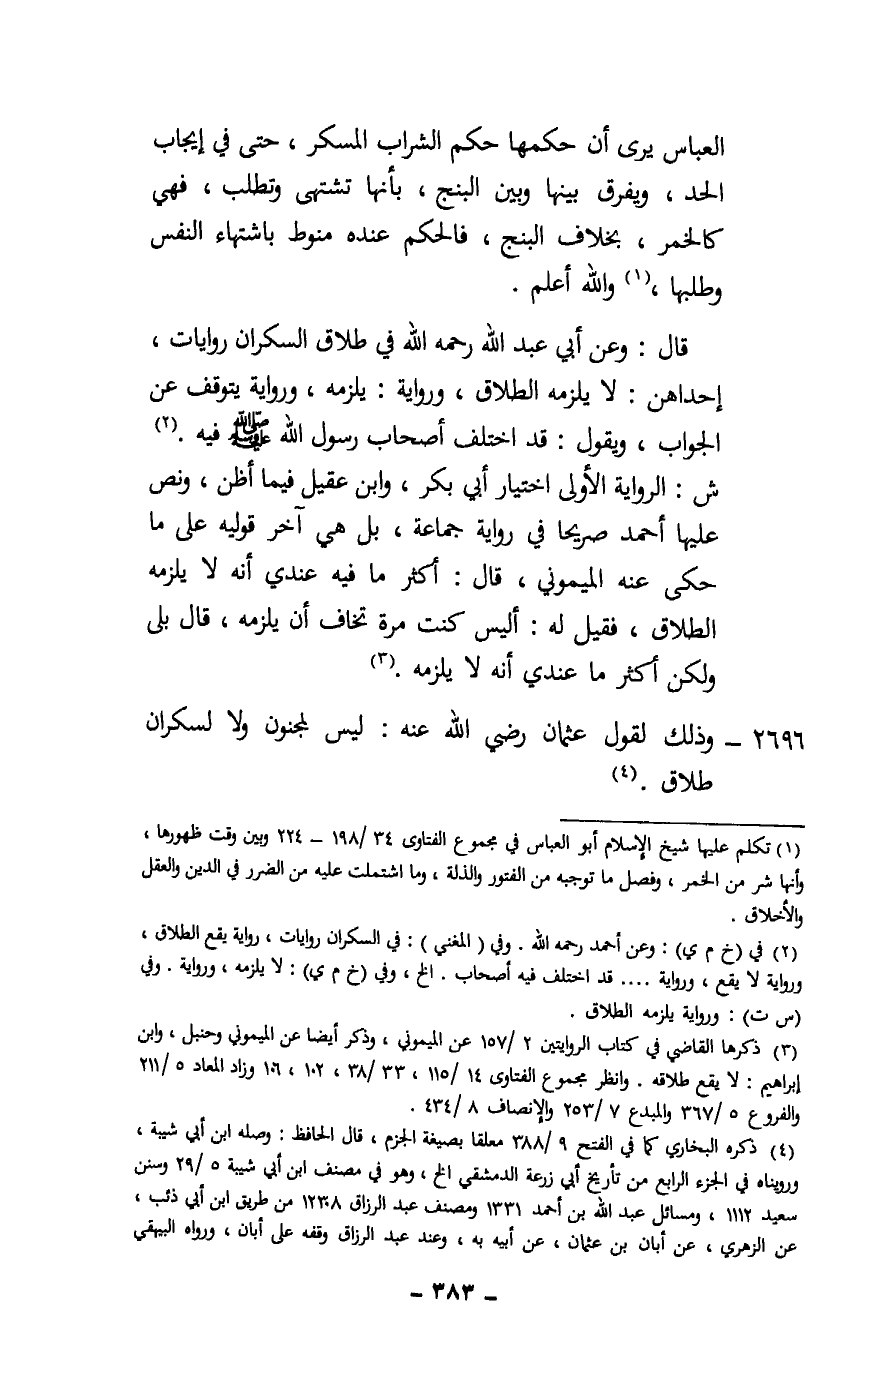 العباس يرى أن حكمها حكم الشراب المسكر ، حتى في إيجاب
الحد ، ويفرق بينها وبين البنج ، بأنها تشتهى وتطلب ، فهي
كالخمر ، بخلاف البنج ، فالحكم عنده منوط باشتهاء النفس
وطلبها ،(١) والله أعلم .
قال : وعن أبي عبد الله رحمه الله في طلاق السكران روايات ،
إحداهن : لا يلزمه الطلاق ، ورواية : يلزمه ، ورواية يتوقف عن
الجواب ، ويقول : قد اختلف أصحاب رسول الله ﷺ فيه .(٢)
ش : الرواية الأولى اختيار أبي بكر ، وابن عقيل فيما أظن ، ونص
عليها أحمد صريحا في رواية جماعة ، بل هي آخر قوليه على ما
حكى عنه الميموني ، قال : أكثر ما فيه عندي أنه لا يلزمه
الطلاق ، فقيل له : أليس كنت مرة تخاف أن يلزمه ، قال بلى
ولكن أكثر ما عندي أنه لا يلزمه .(٣)
٢٦٩٦ – وذلك لقول عثمان رضي الله عنه : ليس لمجنون ولا لسكران
طلاق .(٤)
(١) تكلم عليها شيخ الإسلام أبو العباس في مجموع الفتاوى ٣٤ /١٩٨ – ٢٢٤ وبين وقت ظهورها ،
وأنها شر من الخمر ، وفصل ما توجبه من الفتور والذلة ، وما اشتملت عليه من الضرر في الدين والعقل
والأخلاق .
(٢) في (خ م ي) : وعن أحمد رحمه الله . وفي ( المغني ) : في السكران روايات ، رواية يقع الطلاق ،
ورواية لا يقع ، ورواية .... قد اختلف فيه أصحاب . الخ ، وفي (خ م ي) : لا يلزمه ، ورواية . وفي
(س ت) : ورواية يلزمه الطلاق .
(٣) ذكرها القاضي في كتاب الروايتين ٢ /١٥٧ عن الميموني ، وذكر أيضا عن الميموني وحنبل ، وابن
إبراهيم : لا يقع طلاقه . وانظر مجموع الفتاوى ١٤ /١١٥ ، ٣٣ /٣٨ ، ١٠٢ ، ١٠٦ وزاد المعاد ٥ /٢١١
والفروع ٥ /٣٦٧ والمبدع ٧ /٢٥٣ والإنصاف ٨ /٤٣٤ .
(٤) ذكره البخاري كما في الفتح ٩ /٣٨٨ معلقا بصيغة الجزم ، قال الحافظ : وصله ابن أبي شيبة ،
ورويناه في الجزء الرابع من تأريخ أبي زرعة الدمشقي الخ ، وهو في مصنف ابن أبي شيبة ٥ /٢٩ وسنن
سعيد ١١١٢ ، ومسائل عبد الله بن أحمد ١٣٣١ ومصنف عبد الرزاق ١٢٣٠٨ من طريق ابن أبي ذئب ،
عن الزهري ، عن أبان بن عثمان ، عن أبيه به ، وعند عبد الرزاق وقفه على أبان ، ورواه البيهقي
– ٣٨٣ –